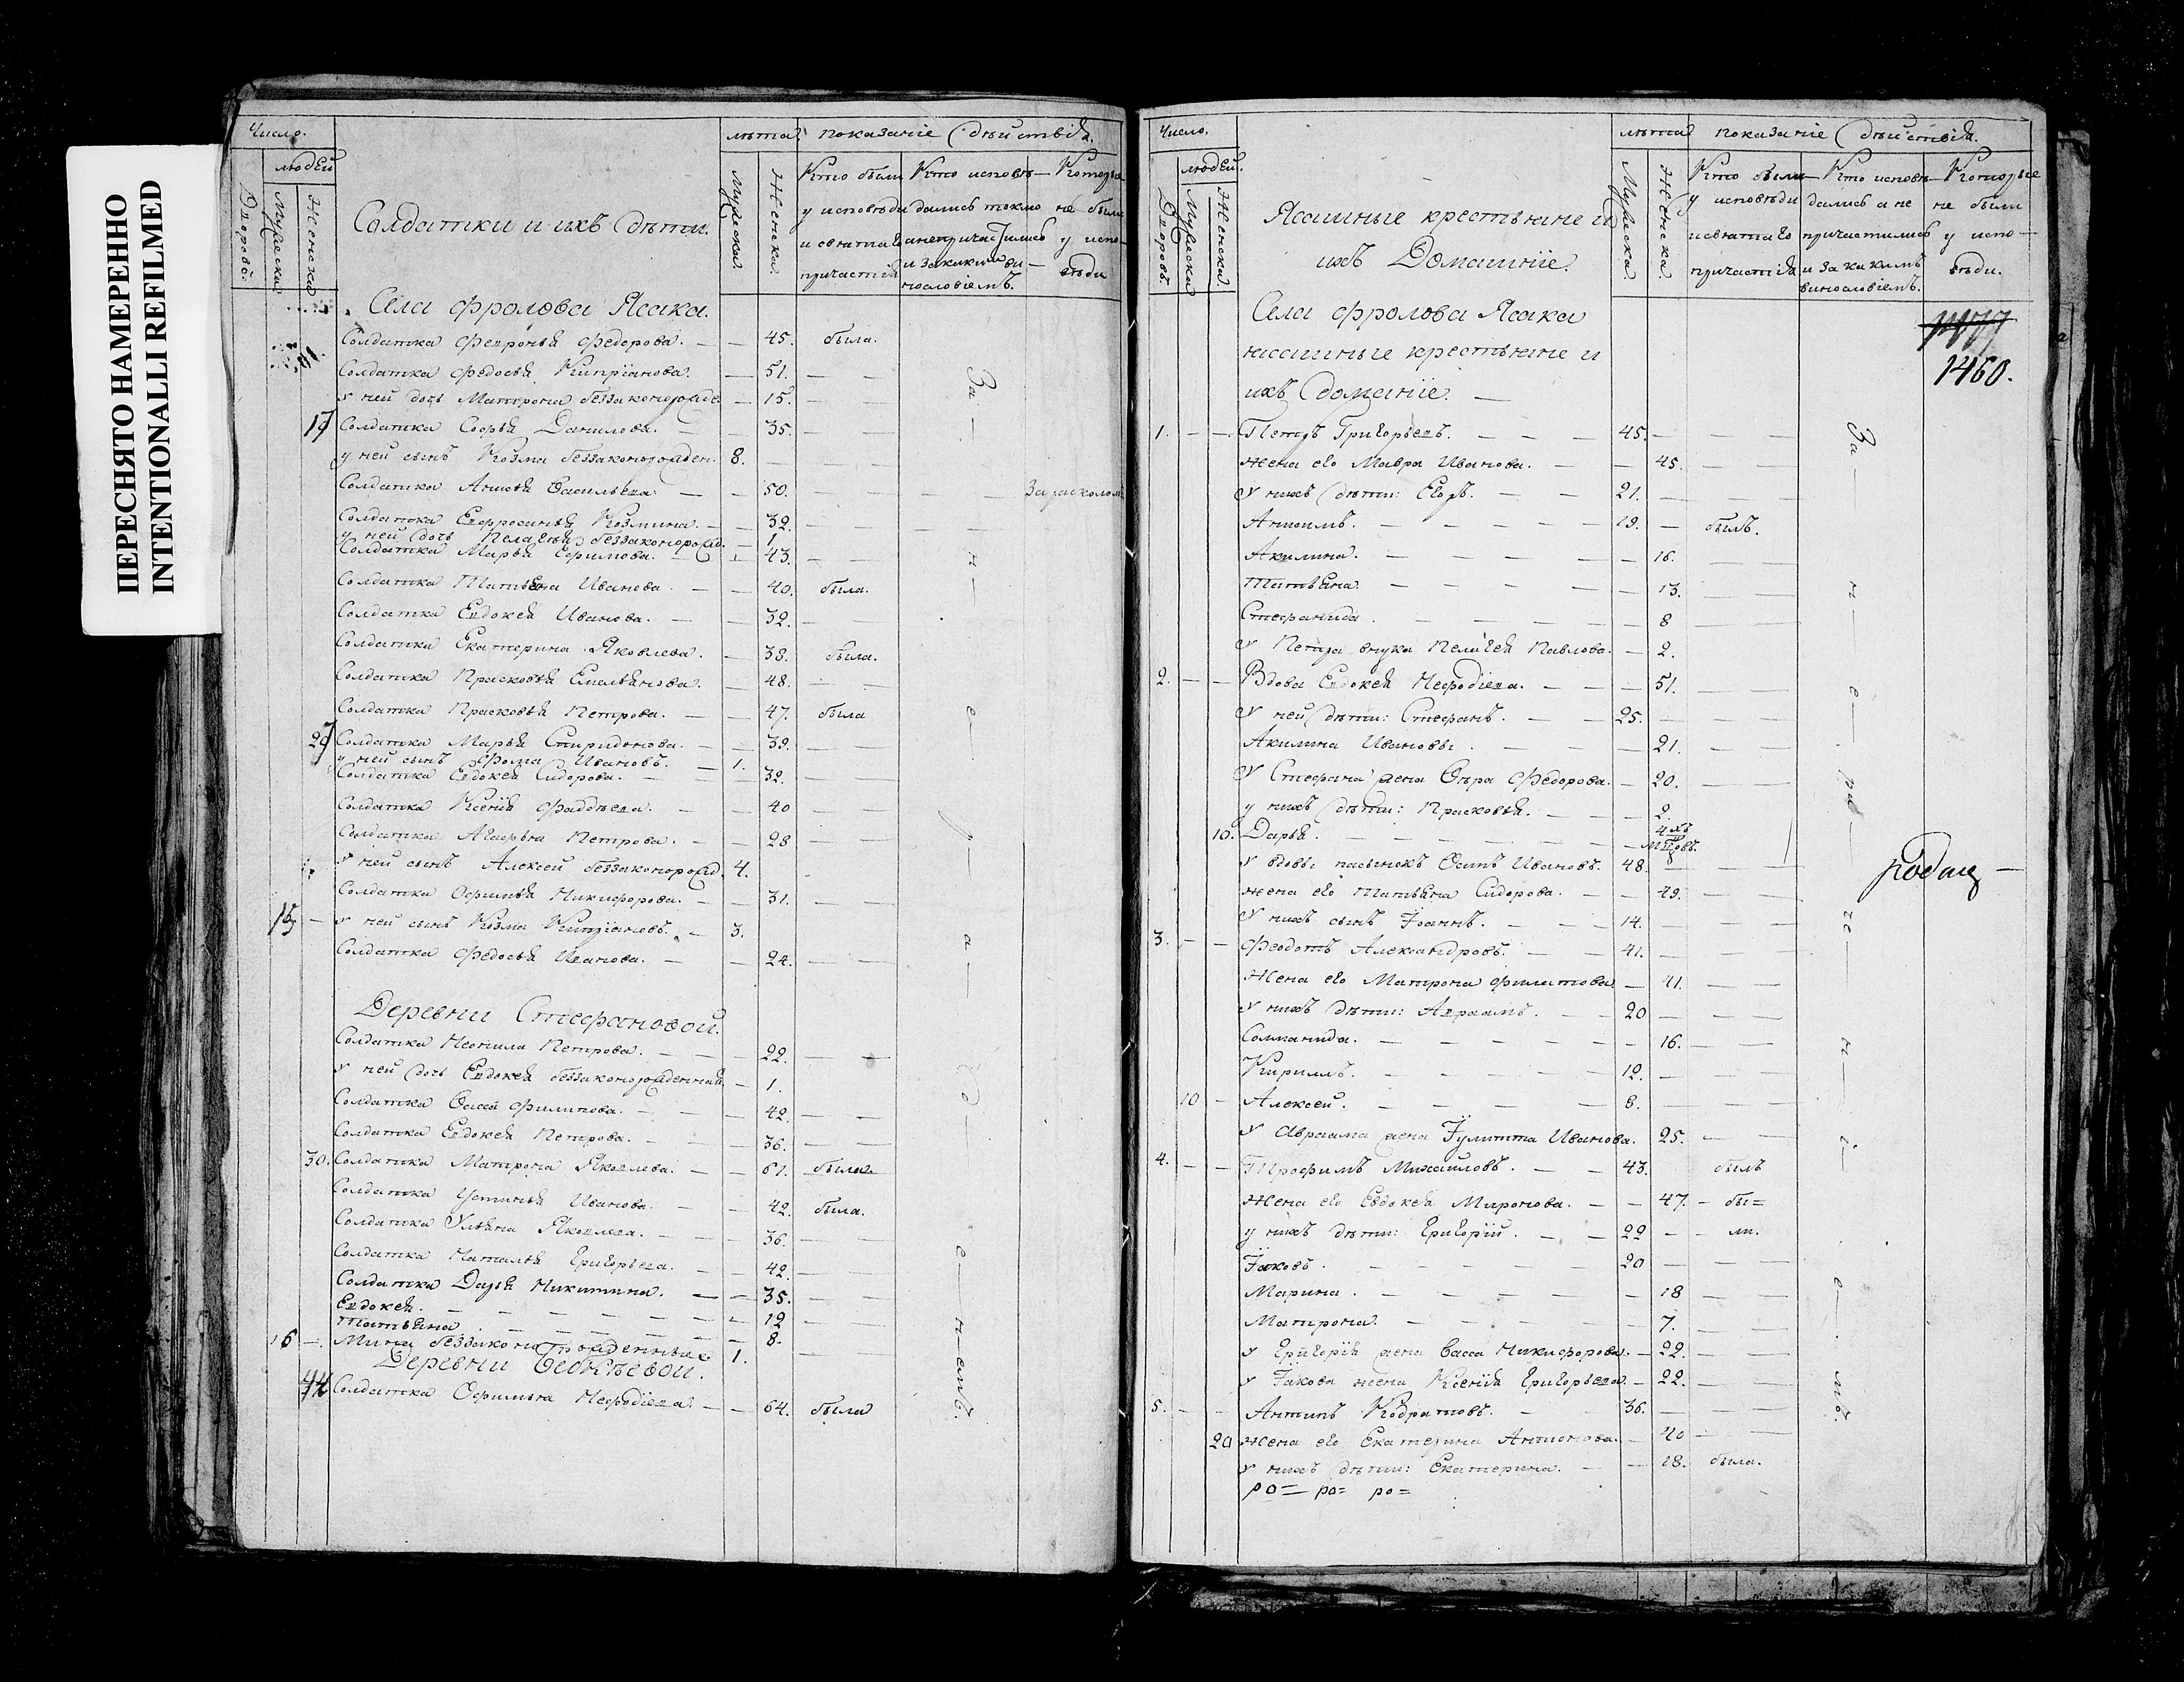 ПЕРЕСНЯТО НАМЕРЕННО
INTENTIONALLI REFILMED
Число.
людей
Дворовъ.
Мужеска
Женска
Солдатки и ихъ дѣти.
лѣта
Мужеска.
Женска.
показанїе дѣйствїя.
Кто были у исповѣди и святаго причастїя
Кто исповѣдались токмо а непричастились и за какимъ винословїемъ.
Которые не были у исповѣди
Села Фролова Ясака.
Солдатка Феdронья Федорова. — 45. была.
Солдатка Федосья Кипрїанова. — 51. — —
У ней дочь Матрона беззаконорожде. — 15. — —
19 Солдатка Софья Данилова. — 35. — —
у ней сынъ Козма беззаконорожден. 8. — —
Солдатка Анисья Васильева. — — 50. — — За расколом
Солдатка Евфросинья Козмина. — — 32. — —
у ней дочь Пелагея беззаконорожд. — 1.
Солдатка Марья Ефимова. — — 43. — —
Солдатка Татьяна Иванова. — — 40. была.
Солдатка Евдокея Иванова. — — 32. —
Солдатка Екатерина Яковлева. — 38. была.
Солдатка Прасковья Емельянова. — 48. — —
Солдатка Прасковья Петрова. — — 47. была
Солдатка Марья Спиридонова. — — 39. — —
у ней сынъ Фома Ивановъ. — 1.
Солдатка Евдокея Сидорова. — — 32. — —
Солдатка Ксенїя Фаддѣева. — — 40 — —
Солдатка Агафья Петрова. — — 28 — —
У ней сынъ Алексей беззаконорожд. 4.
Солдатка Офимья Никифорова. — — 31. — —
15 — У ней сынъ Козма Кипрїановъ. — 3.
Солдатка Федосья Иванова. — — 24. — —
Деревни Стефановой.
Солдатка Неонила Петрова. — — 22. — —
У ней дочь Евдокея беззаконорожденная — 1.
Солдатка Васса Филипова. — — 42. — —
Солдатка Евдокея Петрова. — — 36. — —
30. Солдатка Матрона Яковлева. — — 61. была.
Солдатка Устинья Иванова. — — 42. была.
Солдатка Ульяна Яковлева. — — 36. — —
Солдатка Наталья Григорьева. — — 42. — —
Солдатка Дарья Никитина. — — 35. — —
Евдокея. — — — 12 —
Татьяна. — — — 8.
16 — Мина беззаконнорожденные 1. — —
Деревни
Солдатка Офимья Мефодїева. — — 64. была
За — н — е — р — а — д — е — н — емъ.
Число.
людей.
Дворовъ.
Мужеска
Женска.
Ясашные крестьяне и
ихъ Домашнїе.
лѣта
Мужеска.
Женска.
показанїе дѣйствїя.
Кто были у исповѣди и святаго причастїя
Кто исповѣдались а не причастились и за какимъ винословїемъ.
Которые не были у исповѣди.
Села Фролова Ясака
ясашные крестьяне и
ихъ домашїе. —
1460.
1. — — Петръ Григорьевъ. — — — 45. — — —
Жена его Мавра Иванова. — — 45. — —
У нихъ дѣти: Егоръ. — — 21. — —
Анисимъ. — — — — 19. — былъ.
Акилина. — — — — 16. — —
Татьяна. — — — — 13. — —
Стефанида. — — — — 8 — —
У Петра внука Пелагея Павлова. — 2.
2. — — Вдова Евдокея Мефодїева. — — — 51. — —
У ней дѣти: Стефанъ. — — 25. — —
Акилина Ивановы. — — — 21. — —
У Стефана жена Вѣра Федорова. — 20. — —
у нихъ дѣти: Прасковья. — — — 2.
10. Дарья. — — — — 4 хъ мцовъ.
У вдовы пасынокъ Осипъ Ивановъ. 48. — —
жена его Татьяна Сидорова. — — 49. — —
У нихъ сынъ Іоаннъ. — — — 14. — —
3. — — Феодотъ Александровъ. — — 41. — —
Жена его Матрона Филатова. — 41. — —
У нихъ дѣти: Авраамъ. — — 20 — —
Соломанида. — — — — 16. — —
Кирилъ. — — — — 12. — —
10 — Алексей. — — — — 8. — —
У Авраама жена Іулитта Иванова. 25. — —
4. — — Трофимъ Михайловъ. — — 43. былъ
Жена его Евдокея Миронова. — — 47. — бы=
у нихъ дѣти: Григорїй. — — 22 — — ли.
Іаковъ. — — — — 20 — —
Марина. — — — — 18 — —
Матрона. — — — — 7. — —
у Григорїя жена Васса Никифорова. — 22. — —
у Іакова жена Ксенїя Григорьева. — 22. — —
5. — — Антипъ Кодратовъ. — 36. — —
20 Жена его Екатерина Антонова. — 40 — —
У нихъ дѣти: Екатерина. — — 18. была.
ро= ро= ро=
За — н — е — ра — че — н — і — е — мъ.